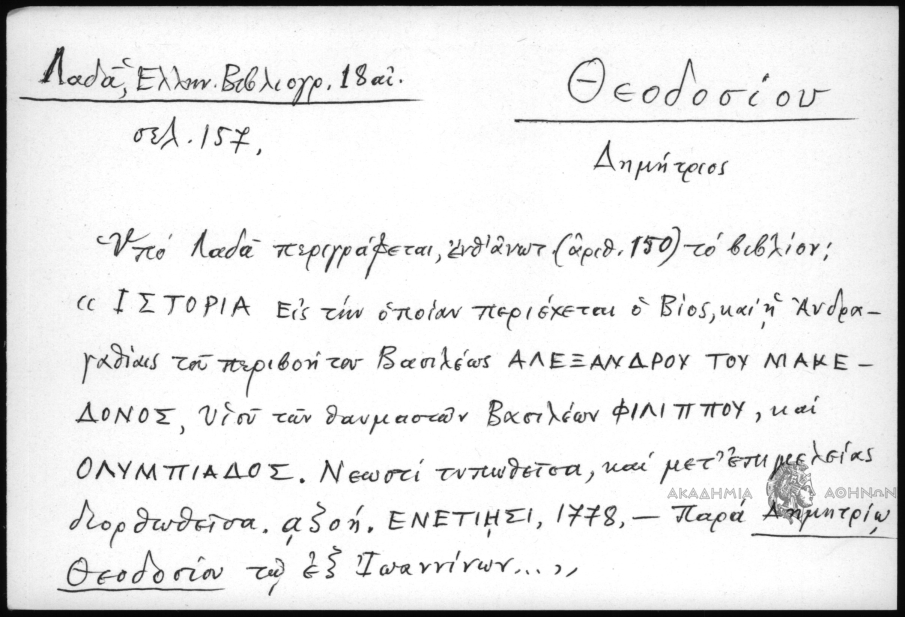 Λαδᾶ, Ἑλλην. Βιβλιογρ. 18 αἰ.
σελ. 157.
Θεοδοσίου
Δημήτριος
Ὑπό Λαδᾶ περιγράφεται, ἐνθ' ἄνωτ (ἀριθ. 150) τό βιβλίον;
«ΙΣΤΟΡΙΑ Εἰς τήν ὁποίαν περιέχεται ὁ Βίος, καί ᾑ Ἀνδρα-
γαθίαις τοῦ περιβοήτου Βασιλέως ΑΛΕΞΑΝΔΡΟΥ ΤΟΥ ΜΑΚΕ-
ΔΟΝΟΣ, Υἱοῦ τῶν θαυμαστῶν Βασιλέων ΦΙΛΙΠΠΟΥ, καί
ΟΛΥΜΠΙΑΔΟΣ. Νεωστί τυπωθεῖσα, καί μετ' ἐπιμελείας
ΑΚΑΔΗΜΙΑ ΑΘΗΝΩΝ
διορθωθεῖσα. αψοή. ΕΝΕΤΙΗΣΙ, 1778, — Παρά Δημητρίῳ
Θεοδοσίου τῷ ἐξ Ἰωαννίνων...»,